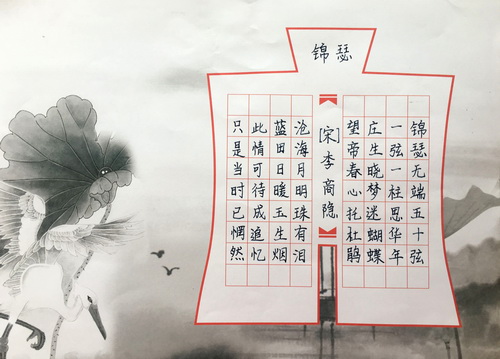 锦瑟
锦瑟无端五十弦
一弦一柱思华年
庄生晓梦迷蝴蝶
望帝春心托杜鹃
[宋]李商隐
沧海月明珠有泪
蓝田日暖玉生烟
此情可待成追忆
只是当时已惘然